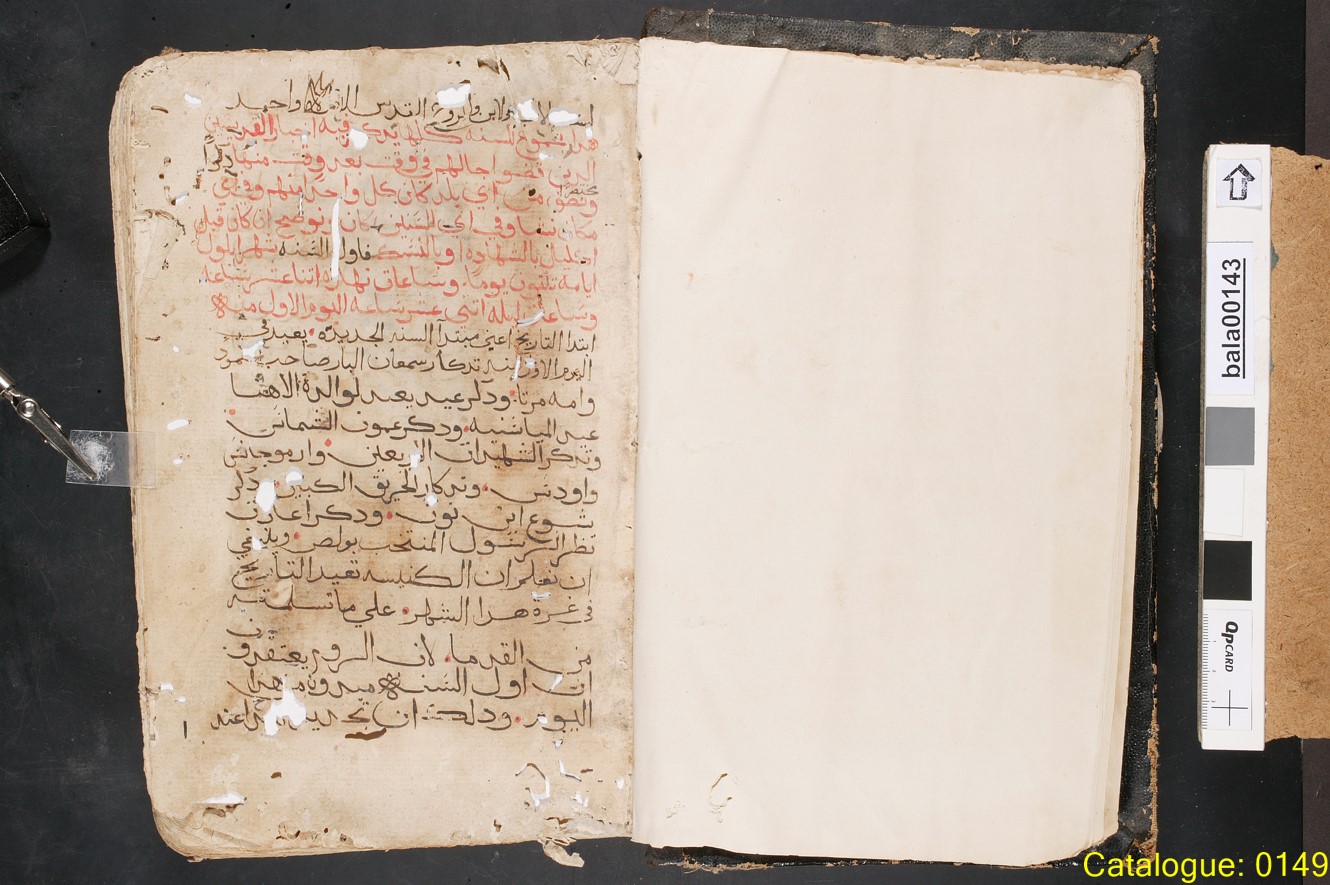 بسم الاب والابن والروح القدس الاله واحد
هذا سنوع السنه كلها يذكر فيه اخبار القديسين
الذين قضوا اجالهم في وقت بعد وقت منها ذكرا
مختصرا
من اي بلد كان كل واحد منهم وفي اي
مكان تنيا وفي اي السنين كان نوضح ان كان قبل
اكليل بالشهاده او بالنسك فاول السنه شهر ايلول
ايامه ثلثون يوما وساعات نهاره اثنا عشر ساعه
وساعات ليله اثني عشر ساعه اليوم الاول منه
ابتدا التاريخ اعني مبتدا السنه الجديده يعيد في
اليوم الاول منه تدكار سمعان البار صاحب العمود
وامه مرتا ودكر عيد يعيد لوالدة الاله
عيد الياسنيه ودكر عمون الشماس
وتدكر الشهيدات الاربعين وارموجانس
واودس وتدكار الحريق الكبير ودكر
يشوع ابن نون ودكر اعارف
نظر الرسول المنتخب بولص وينبغي
ان نعلم ان الكنيسه تعيد التاريخ
في غرة هدا الشهر علي ما تسلمته
من القدما لان الروم يعتقدون
ان اول السنه يبدون من هدا
اليوم ودلك ان عند
bala00143
QPCARD
Catalogue: 0149